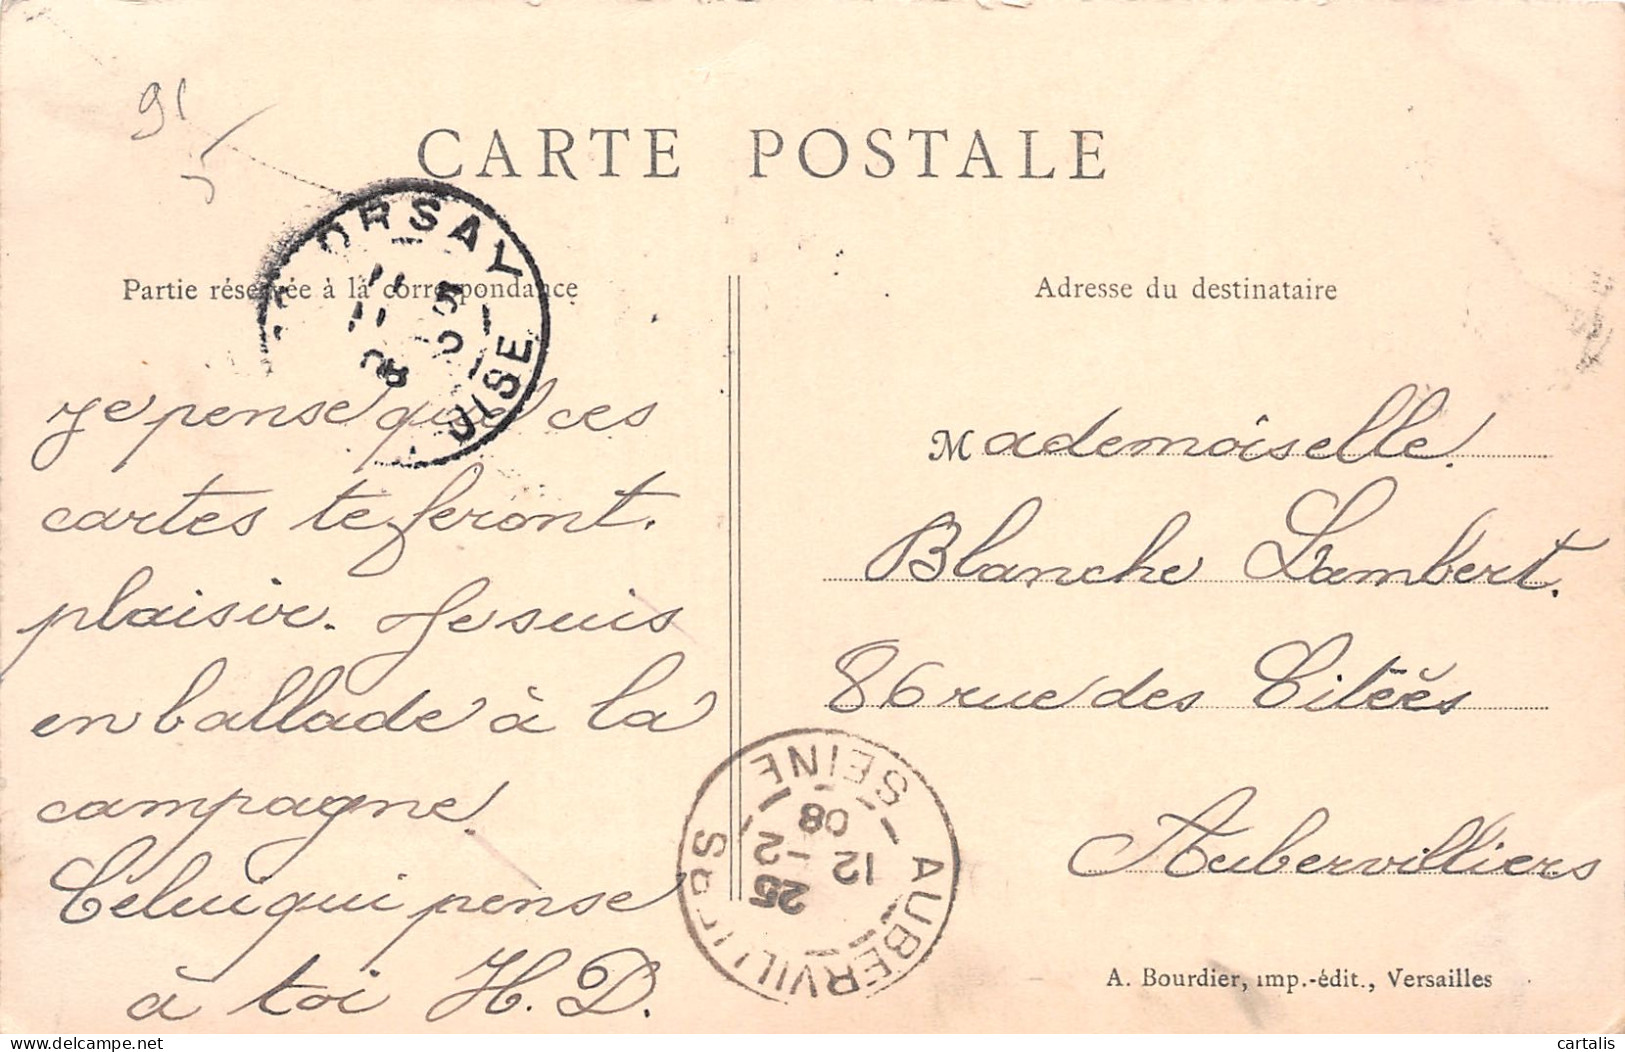 91
5
CARTE POSTALE
ORSAY
OISE
11
08
Partie réservée à la correspondance
Adresse du destinataire
Je pense que ces
cartes te feront.
plaisir. Je suis
en ballade à la
campagne.
Celui qui pense
à toi H. D.
Mademoiselle.
Blanche Lambert.
86 rue des Citées
Aubervilliers
AUBERVILLIERS
SEINE
12
25 -12
08
A. Bourdier, imp.-édit., Versailles
www.delcampe.net
cartalis